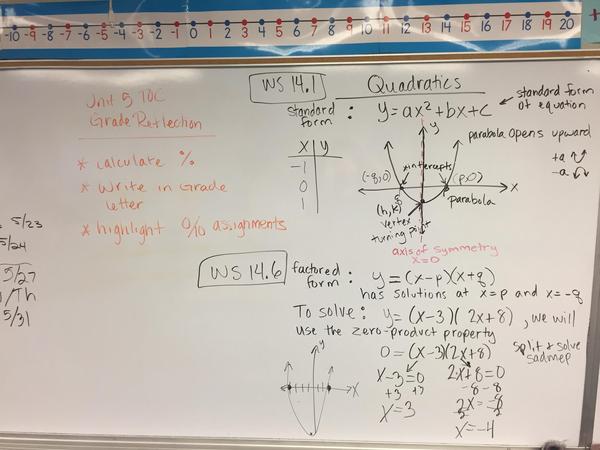 -10 -9 -8 -7 -6 -5 -4 -3 -2 -1 0 1 2 3 4 5 6 7 8 9 10 11 12 13 14 15 16 17 18 19 20
Unit 5 TOC
Grade Reflection
* calculate %
* Write in Grade
letter
* highlight 0/10 assignments
5/23
5/24
5/27
/Th
5/31
WS 14.1
Quadratics
standard
form :
y=ax²+bx+c
standard form
of equation
x y
-1
0
1
y
parabola opens upward
+a
-a
x intercepts
(-q,0)
(p,0)
x
q
p
(h,k)
vertex
turning point
parabola
axis of symmetry
x=0
WS 14.6
factored
form :
y=(x-p)(x+q)
has solutions at x=p and x=-q
To solve: y=(x-3)(2x+8), we will
use the zero-product property
0=(x-3)(2x+8)
split & solve
sadmep
x-3=0 2x+8=0
+3 +3 -8 -8
x=3 2x=-8
2 2
x=-4
y
x